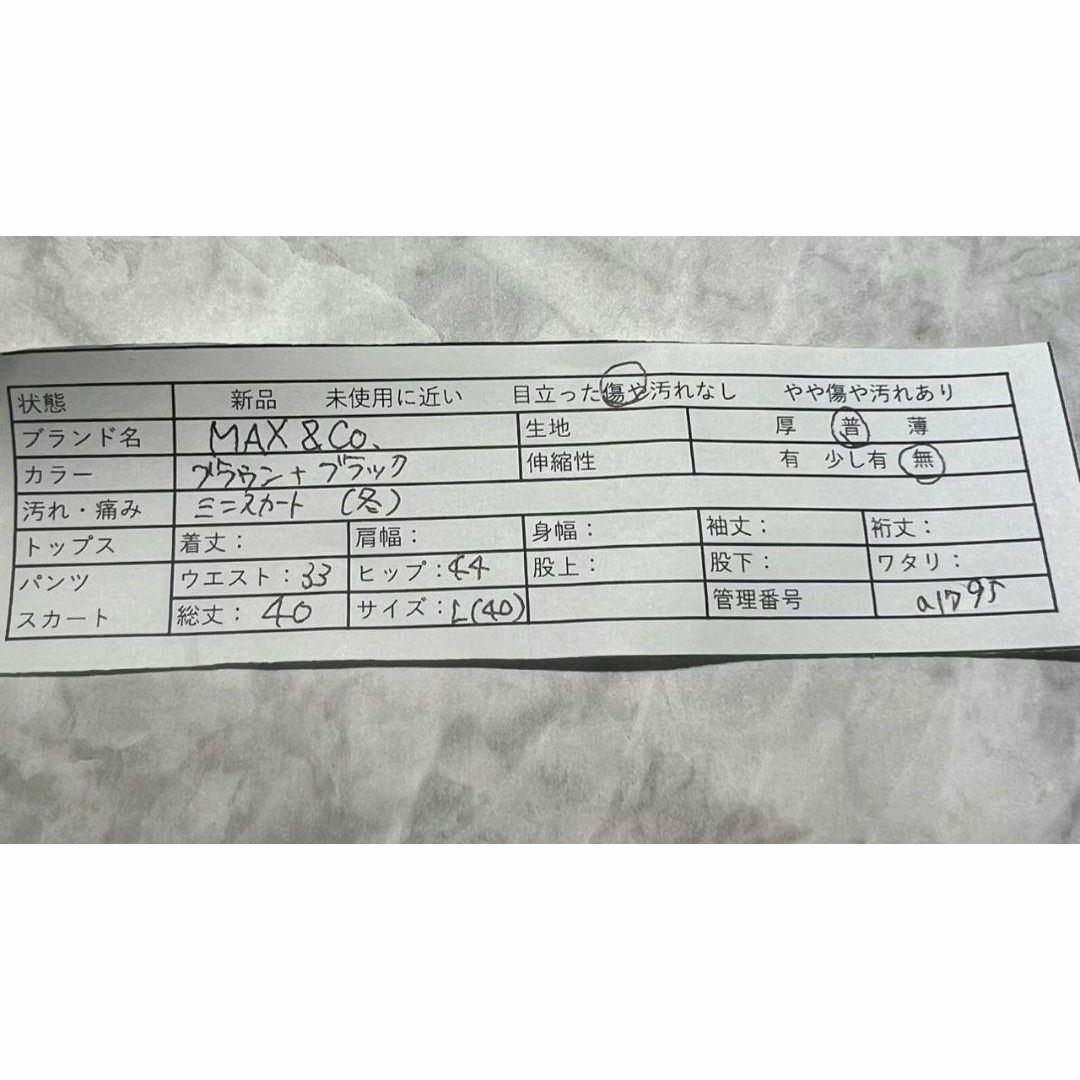 状態 新品 未使用に近い 目立った傷や汚れなし やや傷や汚れあり
ブランド名 MAX & Co. 生地 厚 普 薄
カラー ブラウン+ブラック 伸縮性 有 少し有 無
汚れ・痛み ミニスカート (冬)
トップス 着丈: 肩幅: 身幅: 袖丈: 裄丈:
パンツ ウエスト:33 ヒップ:44 股上: 股下: ワタリ:
スカート 総丈:40 サイズ:L(40) 管理番号 a1795